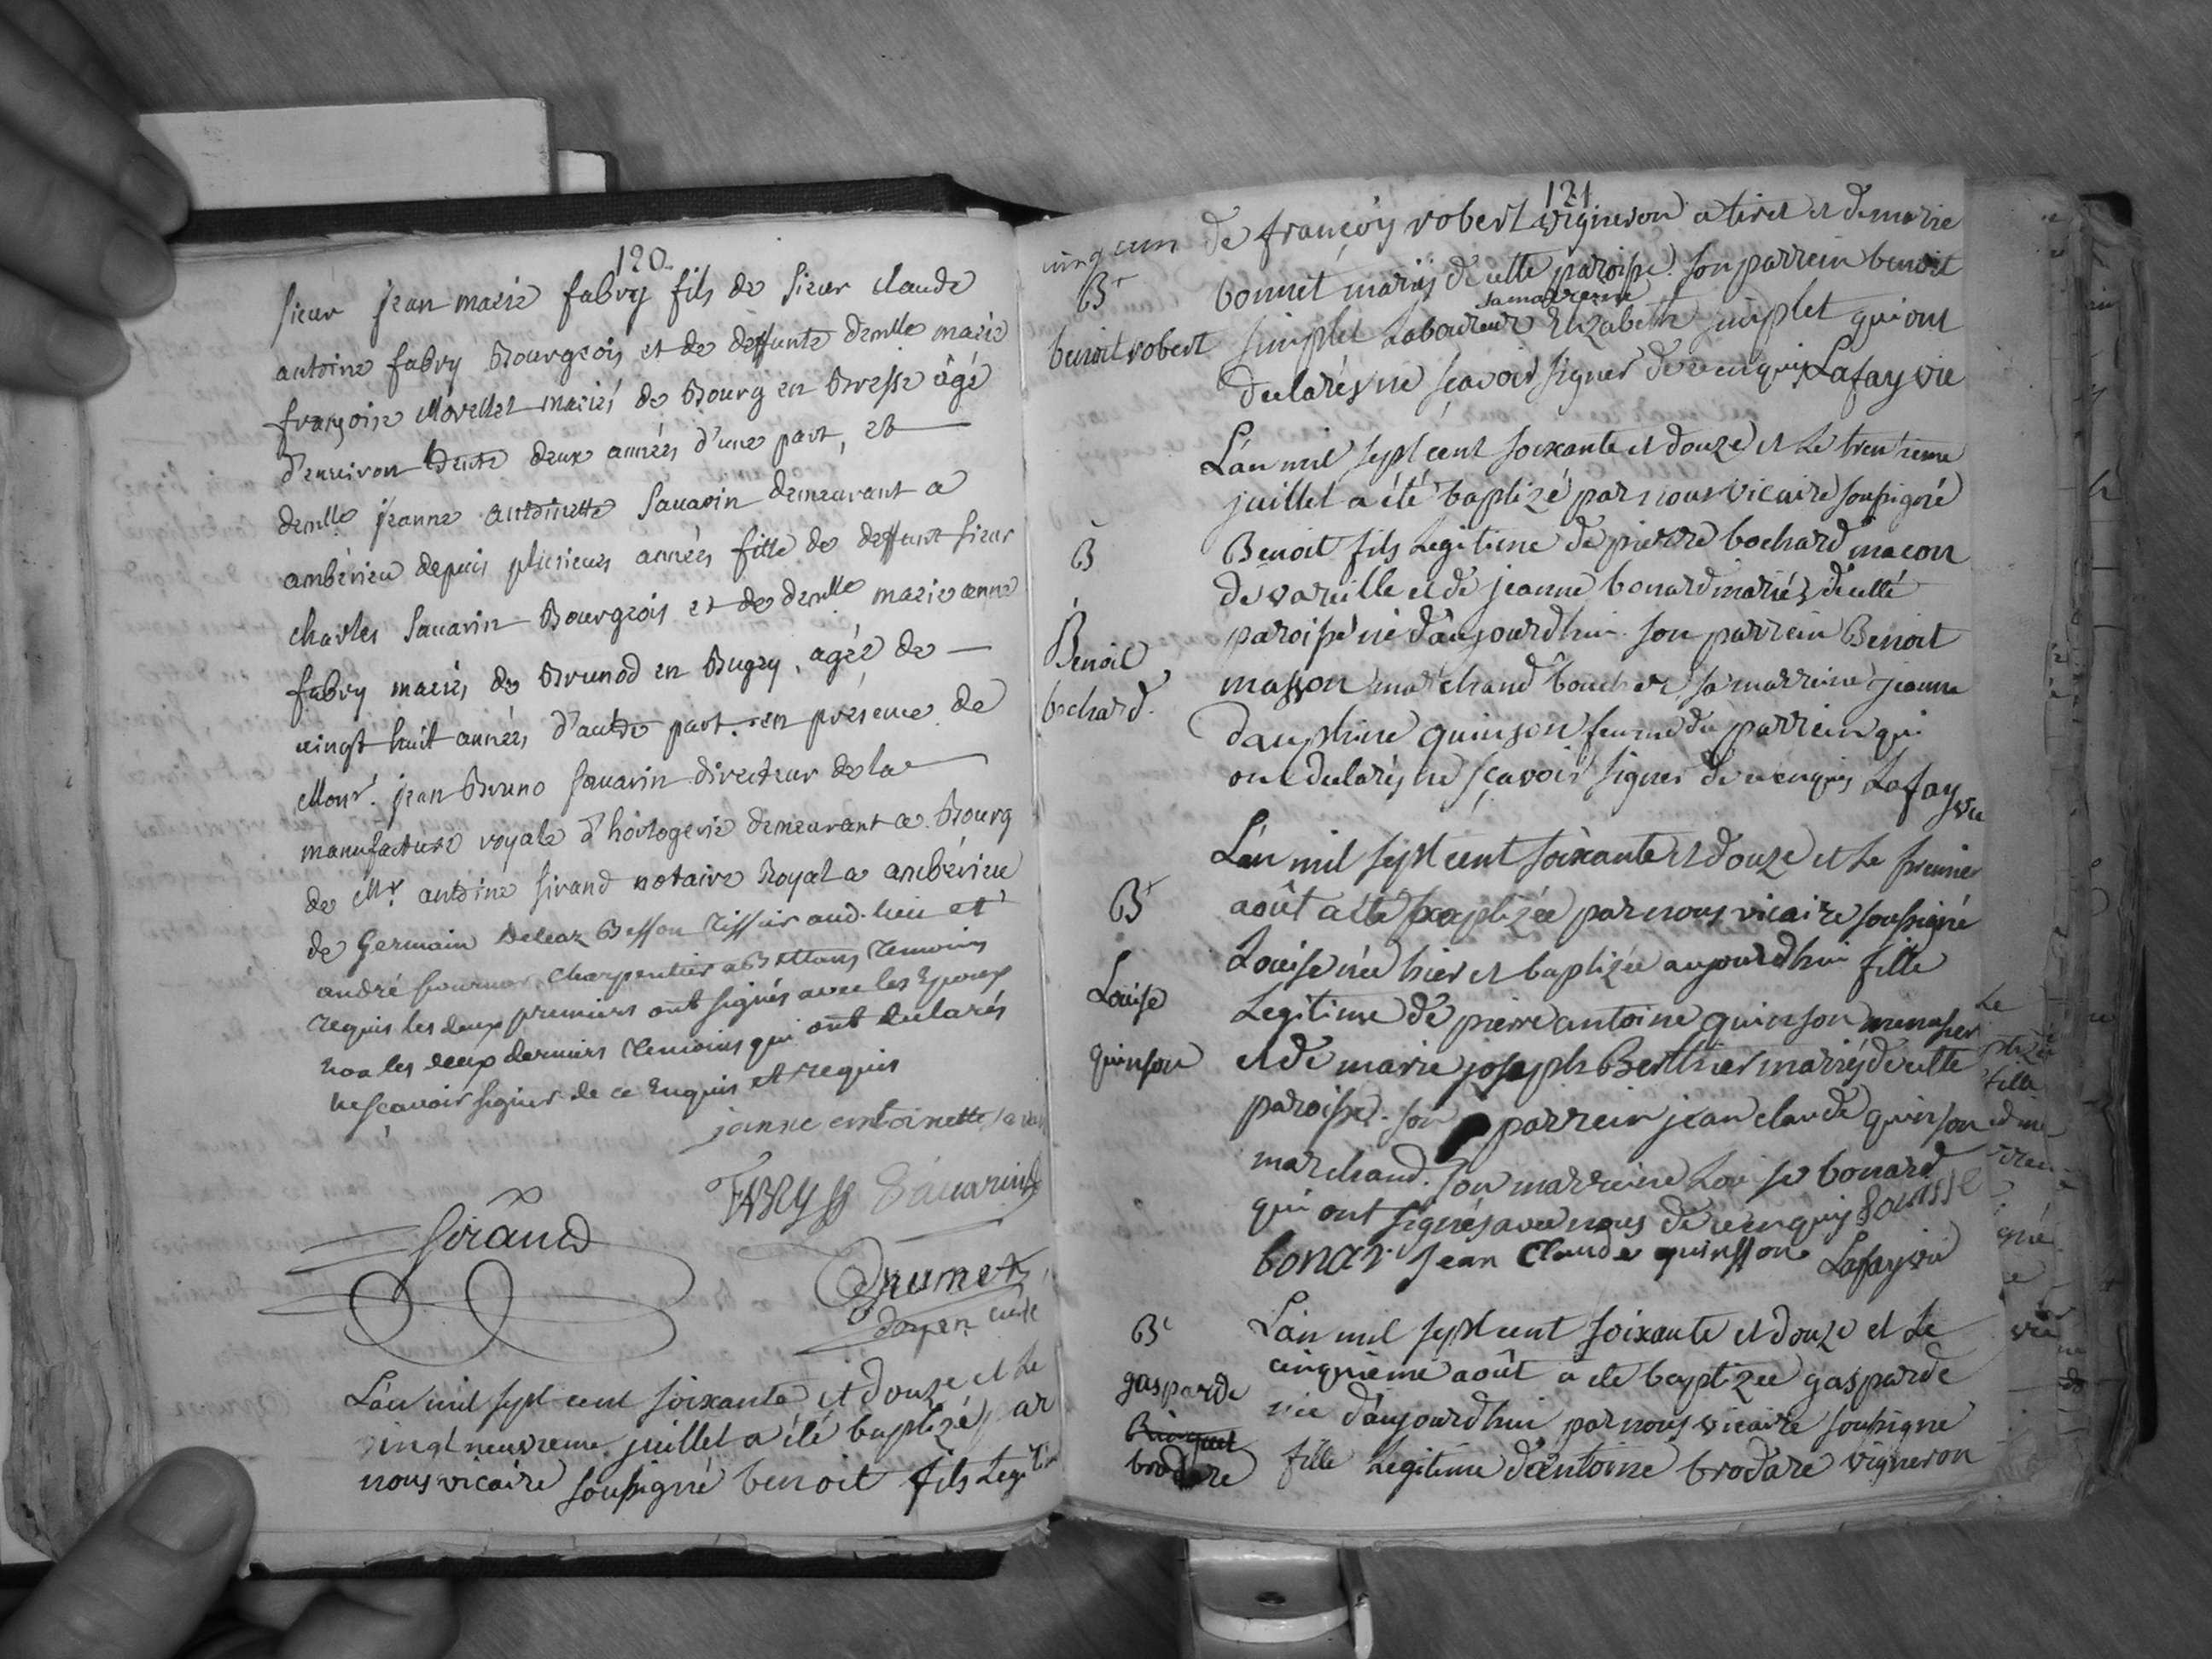 120.
sieur jean marie fabry fils de sieur claude
antoine fabry Bourgeois et de deffunte demlle marie
françoise Morellet mariés de Bourg en Bresse âgé
d'environ trente deux années d'une part, et
demlle jeanne antoinette Savarin demeurant a
ambérieu depuis plusieurs années fille de deffunt sieur
charles Savarin Bourgeois et de demlle marie anne
fabry mariés de Brunod en Bugey, agée de
vingt huit années d'autre part. en présence de
Monr. jean Bruno Savarin directeur de la
manufacture royale d'horlogerie demeurant a Bourg
de Mr. antoine sirand notaire Royal a ambérieu
de Germain Beleaz Besson tissier aud. lieu et
andré fournier charpentier a Bettans temoins
requis les deux premiers ont signés avec les Epoux
non les deux derniers temoins qui ont declarés
ne scavoir signer de ce Enquis et requis
janne entoinette savarin
FABRY Savarin
Sirand
Brumet
doyen curé
L'an mil sept cent soixante et douze et le
vingt neuvieme juillet a été baptizé par
nous vicaire soussigné benoit fils Legitim
121
de françois robert vigneron a tiret et de marie
Bt
benoit robert
bonnet mariés de cette paroisse. son parrein benoit
sa marreine
simplet Laboureur Elizabeth simplet qui ont
declarés ne sçavoir signer de ce enquis Lafay vie
L'an mil sept cent soixante et douze et le trentieme
juillet a été baptizé par nous vicaire soussigné
B
Benoit
bochard.
Benoit fils Legitime de pierre bochard macon
de vareille et de jeanne bonard mariés de cette
paroisse né d'aujourdhui. son parrein Benoit
masson marchand boucher sa marreine jeanne
dauphine quinson femme du parrein qui
ont declarés ne sçavoir signer de ce enquis Lafay
vie
L'an mil sept cent soixante et douze et le premier
Bt
Louise
quinson
août a été baptizée par nous vicaire soussigné
Louise née hier et baptizée aujourdhui fille
Legitime de pierre antoine quinson menusier
et de marie joseph Berthier mariés de cette
paroisse. son parrein jean claude quinson
marchand. son marreine Louise bonard
qui ont signés avec nous de ce enquis Louisse
bonar Jean Claude quinsson Lafay vie
Bt
gasparde
brodare
L'an mil sept cent soixante et douze et le
cinquieme août a été baptizée gasparde
née d'aujourdhui par nous vicaire soussigné
fille Legitime d'antoine brodare vigneron